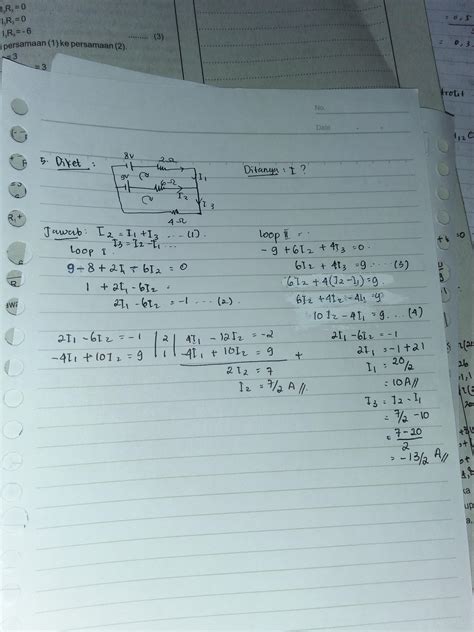 I,R₂=0
I,R₃=0
I,R₁=-6
i persamaan (1) ke persamaan (2).
(3)
= 3
= 3
No.
Date
5. Diket :
8V 2Ω
9V 6Ω
I₁
I₂
I₃
4Ω
Ditanya : I ?
Jawab : I₂ = I₁ + I₃ ... (1)
I₃ = I₂ - I₁ ...
Loop I
9 - 8 + 2I₁ - 6I₂ = 0
1 + 2I₁ - 6I₂ =
2I₁ - 6I₂ = -1 ... (2)
loop II
- 9 + 6I₂ + 4I₃ = 0
6I₂ + 4I₃ = 9 ... (3)
6I₂ + 4(I₂ - I₁) = 9
6I₂ + 4I₂ - 4I₁ = 9
10I₂ - 4I₁ = 9 ... (4)
2I₁ - 6I₂ = -1 | 2 | 4I₁ - 12I₂ = -2
-4I₁ + 10I₂ = 9 | 1 | -4I₁ + 10I₂ = 9 +
2I₂ = 7
I₂ = 7/2 A //
2I₁ - 6I₂ = -1
2I₁ = -1 + 21
I₁ = 20/2
= 10 A //
I₃ = I₂ - I₁
= 7/2 - 10
= 7 - 20
2
= -13/2 A //